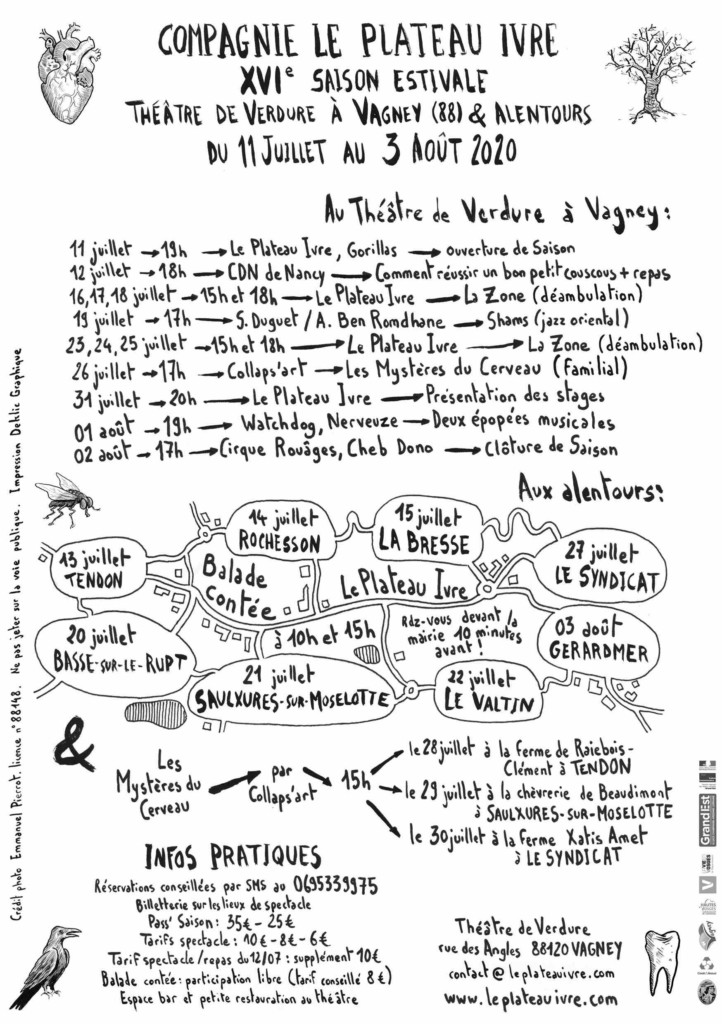 COMPAGNIE LE PLATEAU IVRE
XVIe SAISON ESTIVALE
THÉÂTRE DE VERDURE À VAGNEY (88) & ALENTOURS
DU 11 JUILLET AU 3 AOÛT 2020
Au Théâtre de Verdure à Vagney:
11 juillet → 19h → Le Plateau Ivre, Gorillas → ouverture de Saison
12 juillet → 18h → CDN de Nancy → Comment réussir un bon petit couscous + repas
16,17,18 juillet → 15h et 18h → Le Plateau Ivre → La Zone (déambulation)
19 juillet → 17h → S. Duguet / A. Ben Romdhane → Shams (jazz oriental)
23,24,25 juillet → 15h et 18h → Le Plateau Ivre → La Zone (déambulation)
26 juillet → 17h → Collaps'art → Les Mystères du Cerveau (Familial)
31 juillet → 20h → Le Plateau Ivre → Présentation des stages
01 août → 19h → Watchdog, Nerveuze → Deux épopées musicales
02 août → 17h → Cirque Rouâges, Cheb Dono → Clôture de Saison
Aux alentours:
14 juillet
ROCHESSON
15 juillet
LA BRESSE
13 juillet
TENDON
27 juillet
LE SYNDICAT
Balade
contée
Le Plateau Ivre
à 10h et 15h
Rdz-vous devant la
mairie 10 minutes
avant !
20 juillet
BASSE-SUR-LE-RUPT
03 août
GERARDMER
21 juillet
SAULXURES-SUR-MOSELOTTE
22 juillet
LE VALTIN
&
Les
Mystères du
Cerveau
→ par
Collaps'art
→ 15h
le 28 juillet à la ferme de Raiebois-
Clément à TENDON
le 29 juillet à la chèvrerie de Beaudimont
à SAULXURES-SUR-MOSELOTTE
le 30 juillet à la ferme Xatis Amet
à LE SYNDICAT
INFOS PRATIQUES
Réservations conseillées par SMS au 0695339975
Billetterie sur les lieux de spectacle
Pass' Saison: 35€ - 25€
Tarifs spectacle: 10€ - 8€ - 6€
Tarif spectacle/repas du 12/07: supplément 10€
Balade contée: participation libre (tarif conseillé 8€)
Espace bar et petite restauration au théâtre
Théâtre de Verdure
rue des Angles 88120 VAGNEY
contact@leplateauivre.com
www.leplateauivre.com
Crédit photo Emmanuel Pierrot. licence n°88148. Ne pas jeter sur la voie publique. Impression Dehlie Graphique
GrandEst